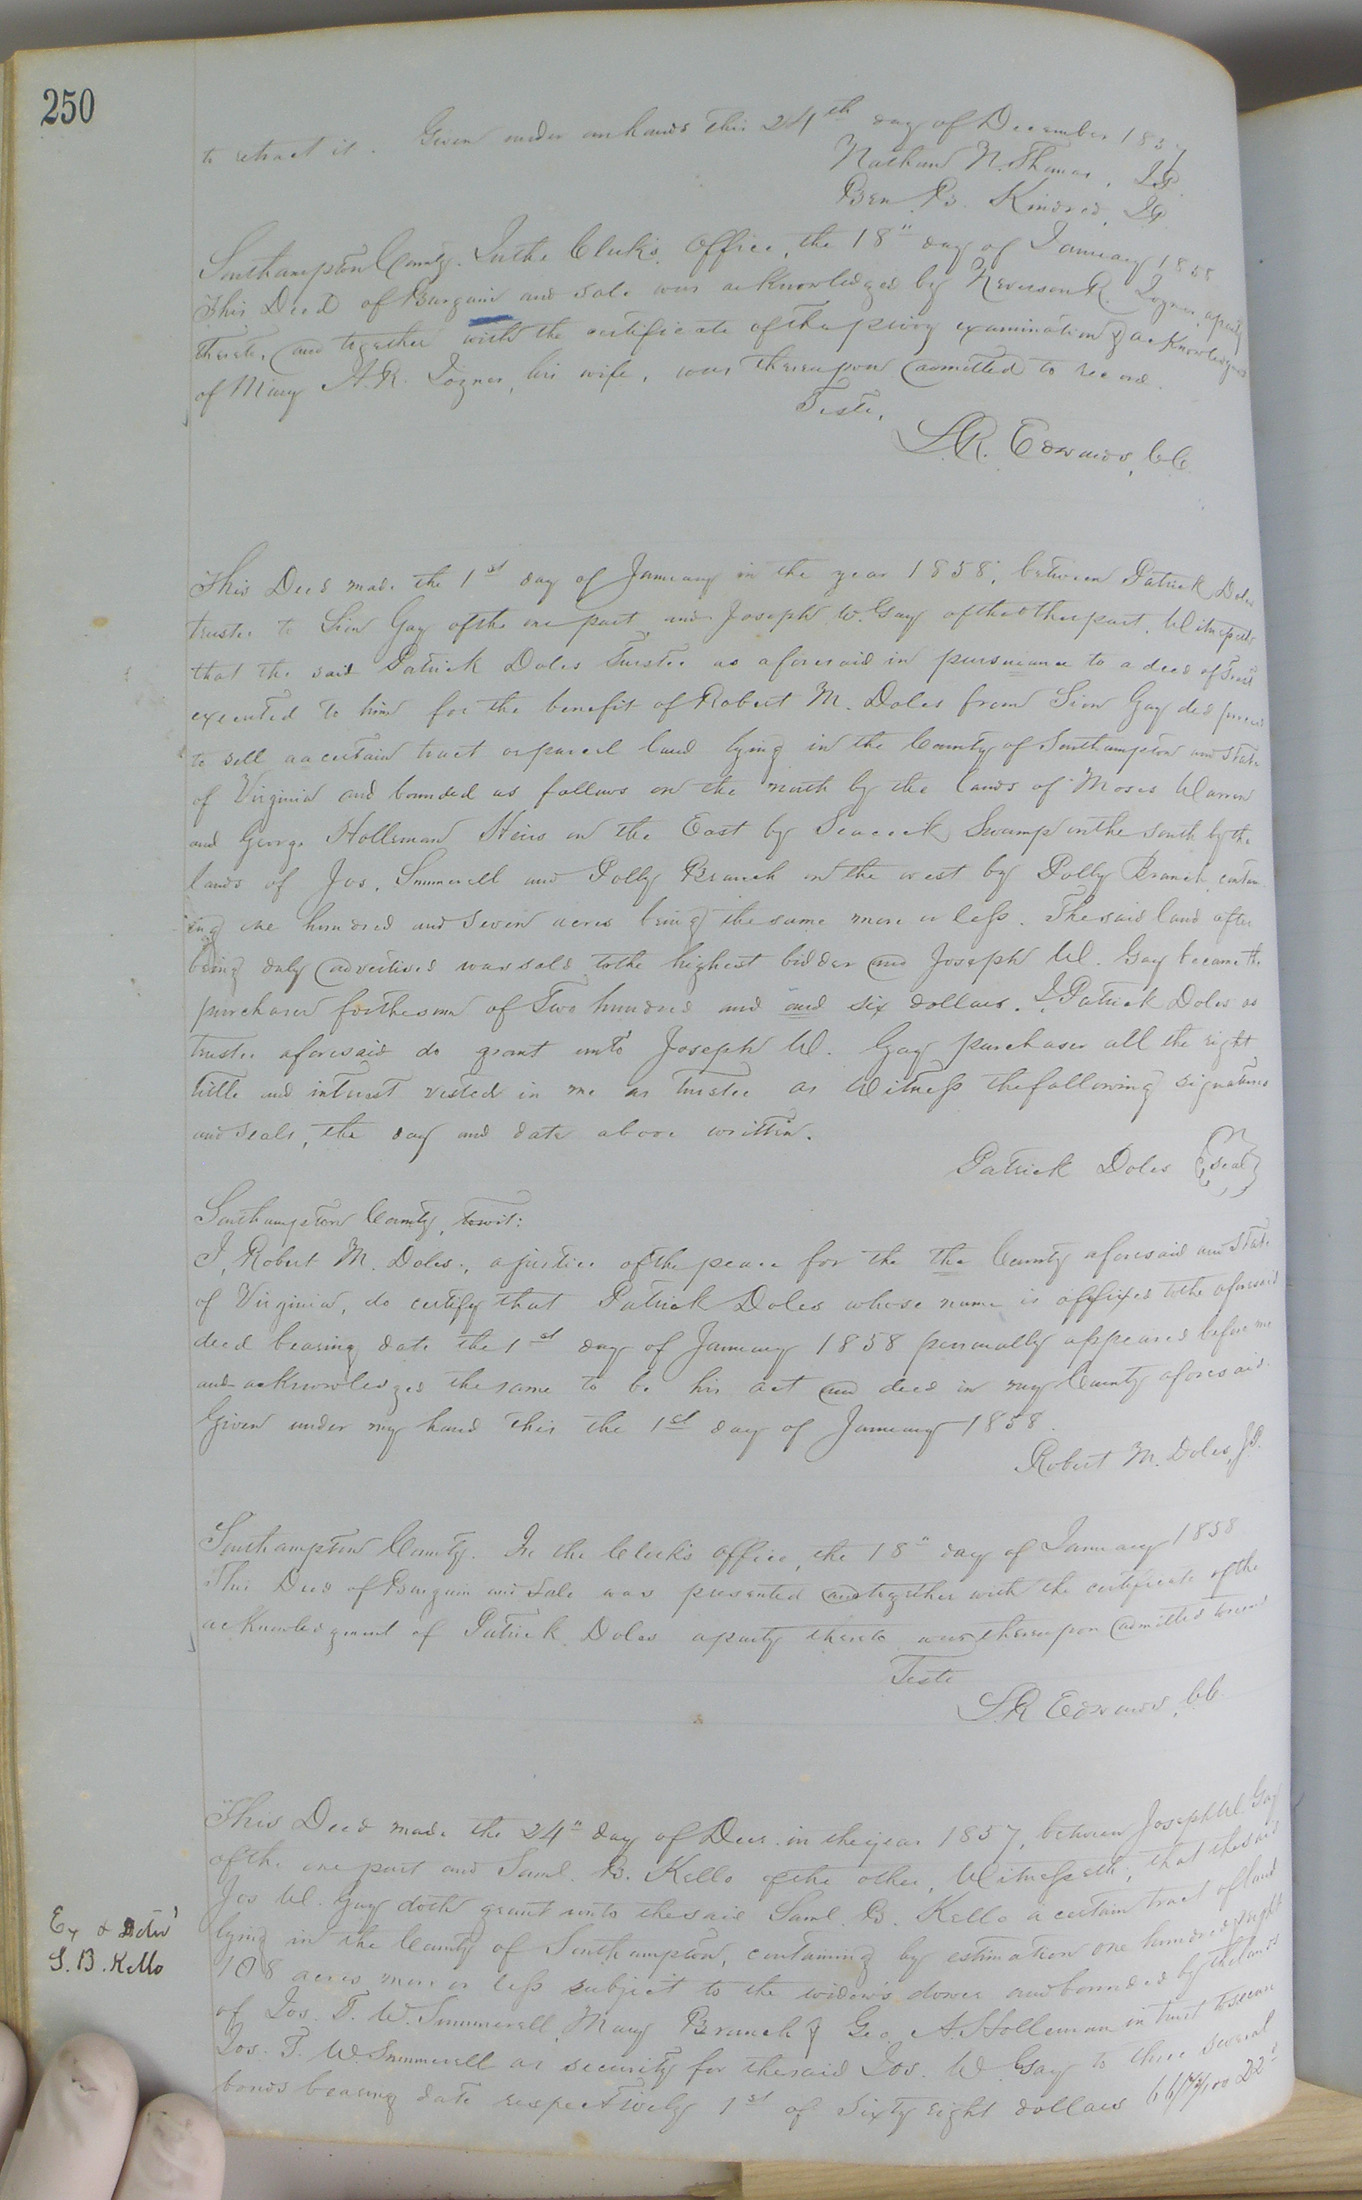 250
to retract it. Given under our hands this 24th day of December 1857
Nathan N. Thomas, J.P.
Ben. B. Kindred, J.P.
Southampton County. In the Clerk's Office, the 18" day of January 1858
This Deed of Bargain and Sale was acknowledged by R. Joyner, a party
thereto, and together with the certificate of the privy examination & acknowledgment
of Mary A. R. Joyner, his wife, was thereupon admitted to record.
Teste,
L. R. Edwards, C.C.
This Deed made the 1st day of January in the year 1858, between Patrick Doles
trustee to Sion Gay of the one part, and Joseph W. Gay of the other part, Witnesseth
that the said Patrick Doles Trustee as aforesaid in pursuance to a deed of Trust
executed to him for the benefit of Robert M. Doles from Sion Gay did proceed
to sell a certain tract or parcel land lying in the County of Southampton and State
of Virginia and bounded as follows on the north by the lands of Moses Warren
and George Holleman Heirs on the East by Seacock Swamp on the South by the
lands of Jos. Summerell and Polly Branch on the west by Polly Branch, contain-
ing one hundred and seven acres being the same more or less. The said land after
being duly advertised was sold to the highest bidder and Joseph W. Gay became the
purchaser for the sum of Two hundred and and six dollars. I, Patrick Doles as
trustee aforesaid do grant unto Joseph W. Gay purchaser all the right
title and interest vested in me as trustee as Witness the following signatures
and seals, the day and date above written.
Patrick Doles {seal}
Southampton County, towit:
I, Robert M. Doles, a justice of the peace for the the County aforesaid and State
of Virginia, do certify that Patrick Doles whose name is affixed to the aforesaid
deed bearing date the 1st day of January 1858 personally appeared before me
and acknowledged the same to be his act and deed in my County aforesaid.
Given under my hand this the 1st day of January 1858.
Robert M. Doles, J.P.
Southampton County. In the Clerk's Office, the 18" day of January 1858
This Deed of Bargain and Sale was presented and together with the certificate of the
acknowledgment of Patrick Doles a party thereto was thereupon admitted to record
Teste
L R Edwards, C.C.
This Deed made the 24" day of Decr. in the year 1857, between Joseph W. Gay
of the one part and Saml. B. Kello of the other, Witnesseth; that the said
Jos W. Gay doth grant unto the said Saml. B. Kello a certain tract of land
Ex & Deld
S. B. Kello
lying in the County of Southampton, containing by estimation one hundred & eight
108 acres more or less subject to the widow's dower and bounded by the lands
of Jos. T. W. Summerell, Mary Branch & Geo. A. Holleman in trust to secure
Jos. T. W. Summerell as security for the said Jos. W. Gay to three several
bonds bearing date respectively 1st of Sixty eight dollars